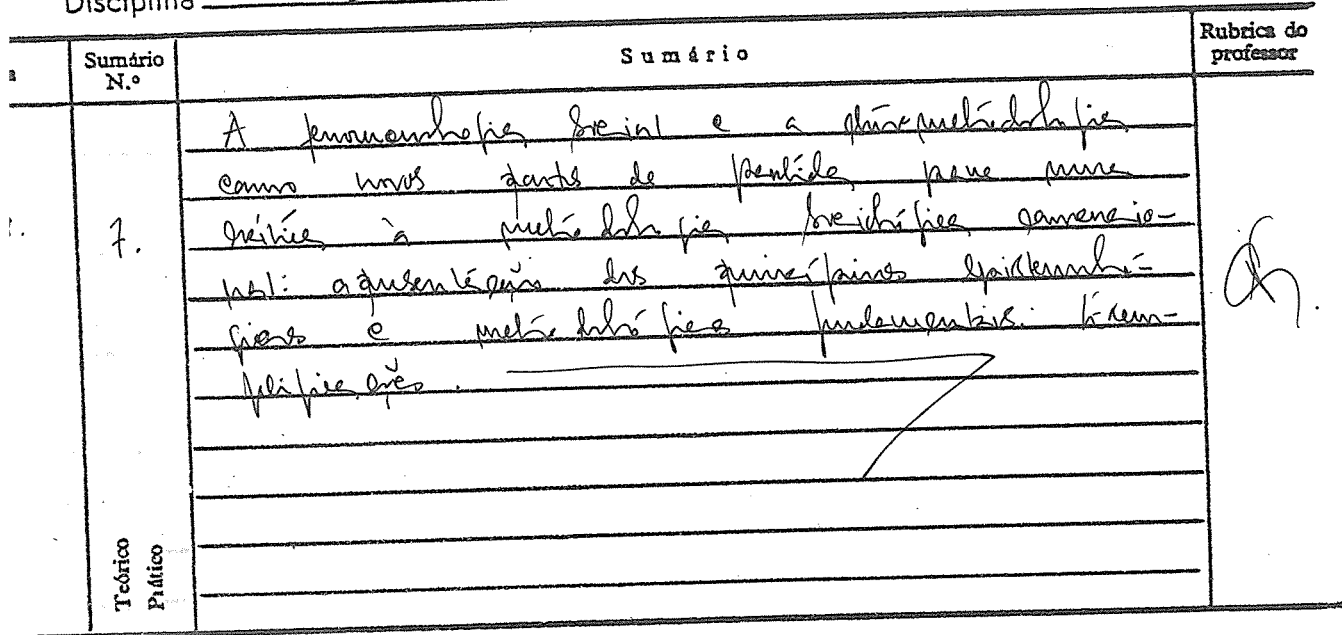 Disciplina
Sumário
N.º
Sumário
Rubrica do
professor
7.
A fenomenologia social e a etnometodologia
como novos pontos de partida para uma
crítica à metodologia sociológica convencio-
nal: apresentação dos princípios epistemoló-
gicos e metodológicos fundamentais. Exem-
plificações.
Teórico
Prático